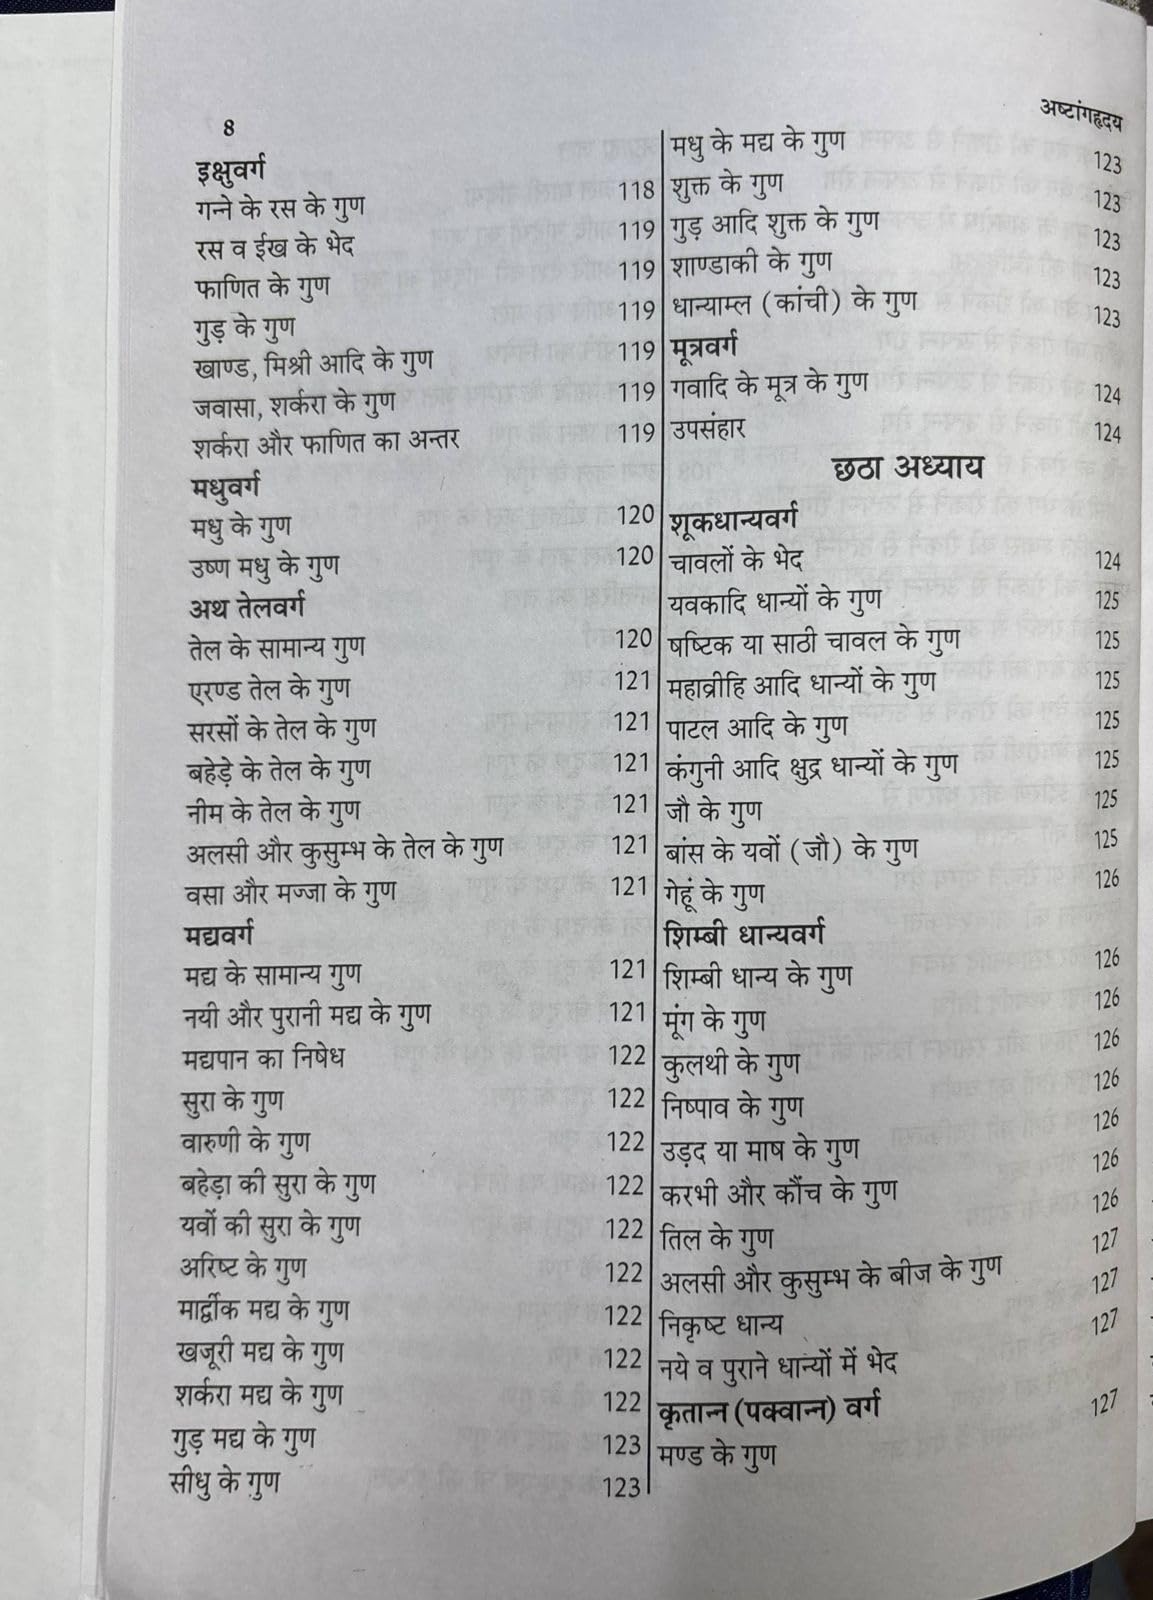 8
अष्टांगहृदय
इक्षुवर्ग
गन्ने के रस के गुण 118
रस व ईख के भेद 119
फाणित के गुण 119
गुड़ के गुण 119
खाण्ड, मिश्री आदि के गुण 119
जवासा, शर्करा के गुण 119
शर्करा और फाणित का अन्तर 119
मधुवर्ग
मधु के गुण 120
उष्ण मधु के गुण 120
अथ तेलवर्ग
तेल के सामान्य गुण 120
एरण्ड तेल के गुण 121
सरसों के तेल के गुण 121
बहेड़े के तेल के गुण 121
नीम के तेल के गुण 121
अलसी और कुसुम्भ के तेल के गुण 121
वसा और मज्जा के गुण 121
मद्यवर्ग
मद्य के सामान्य गुण 121
नयी और पुरानी मद्य के गुण 121
मद्यपान का निषेध 122
सुरा के गुण 122
वारुणी के गुण 122
बहेड़ा की सुरा के गुण 122
यवों की सुरा के गुण 122
अरिष्ट के गुण 122
मार्द्वीक मद्य के गुण 122
खजूरी मद्य के गुण 122
शर्करा मद्य के गुण 122
गुड़ मद्य के गुण 123
सीधु के गुण 123
मधु के मद्य के गुण 123
शुक्त के गुण 123
गुड़ आदि शुक्त के गुण 123
शाण्डाकी के गुण 123
धान्याम्ल (कांची) के गुण 123
मूत्रवर्ग
गवादि के मूत्र के गुण 124
उपसंहार 124
छठा अध्याय
शूकधान्यवर्ग
चावलों के भेद 124
यवकादि धान्यों के गुण 125
षष्टिक या साठी चावल के गुण 125
महाव्रीहि आदि धान्यों के गुण 125
पाटल आदि के गुण 125
कंगुनी आदि क्षुद्र धान्यों के गुण 125
जौ के गुण 125
बांस के यवों (जौ) के गुण 125
गेहूं के गुण 126
शिम्बी धान्यवर्ग
शिम्बी धान्य के गुण 126
मूंग के गुण 126
कुलथी के गुण 126
निष्पाव के गुण 126
उड़द या माष के गुण 126
करभी और कौंच के गुण 126
तिल के गुण 126
अलसी और कुसुम्भ के बीज के गुण 127
निकृष्ट धान्य 127
नये व पुराने धान्यों में भेद 127
कृतान्न (पक्वान्न) वर्ग
मण्ड के गुण 127